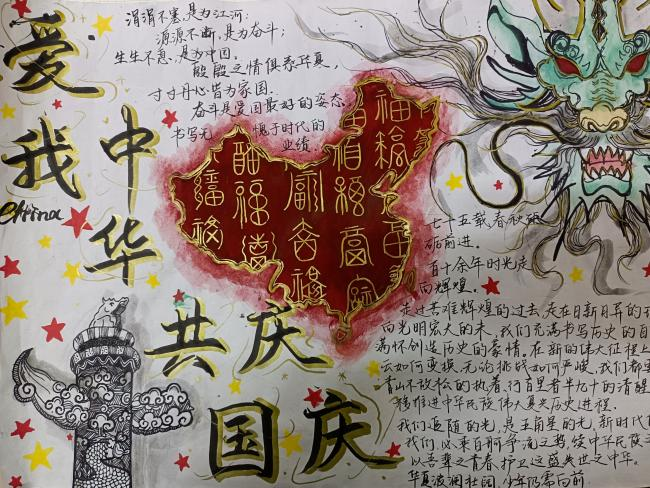 涓涓不塞,是为江河;
源源不断,是为奋斗;
生生不息,是为中国。
殷殷之情俱系华夏,
寸寸丹心皆为家国.
奋斗是爱国最好的姿态
书写无愧于时代的
业绩
爱我中华
China
共庆
国庆
七十五载春秋砥
砺前进。
百十余年时光走
向辉煌.
走过苦难辉煌的过去,走在日新月异的
向光明宏大的未,我们充满书写历史的自
满怀创造历史的豪情。在新的伟大征程上
云如何变换,无论挑战如何严峻,我们都
青山不放松的执着,行百里者半九十的清醒
推进中华民族伟大复兴历史进程.
我们追随的光,是五角星的光,新时代
我们,以来日舸争流之势,续中华民族之
以吾辈之青春,护卫这盛世之中华。
华夏波澜壮阔,少年仍需向前